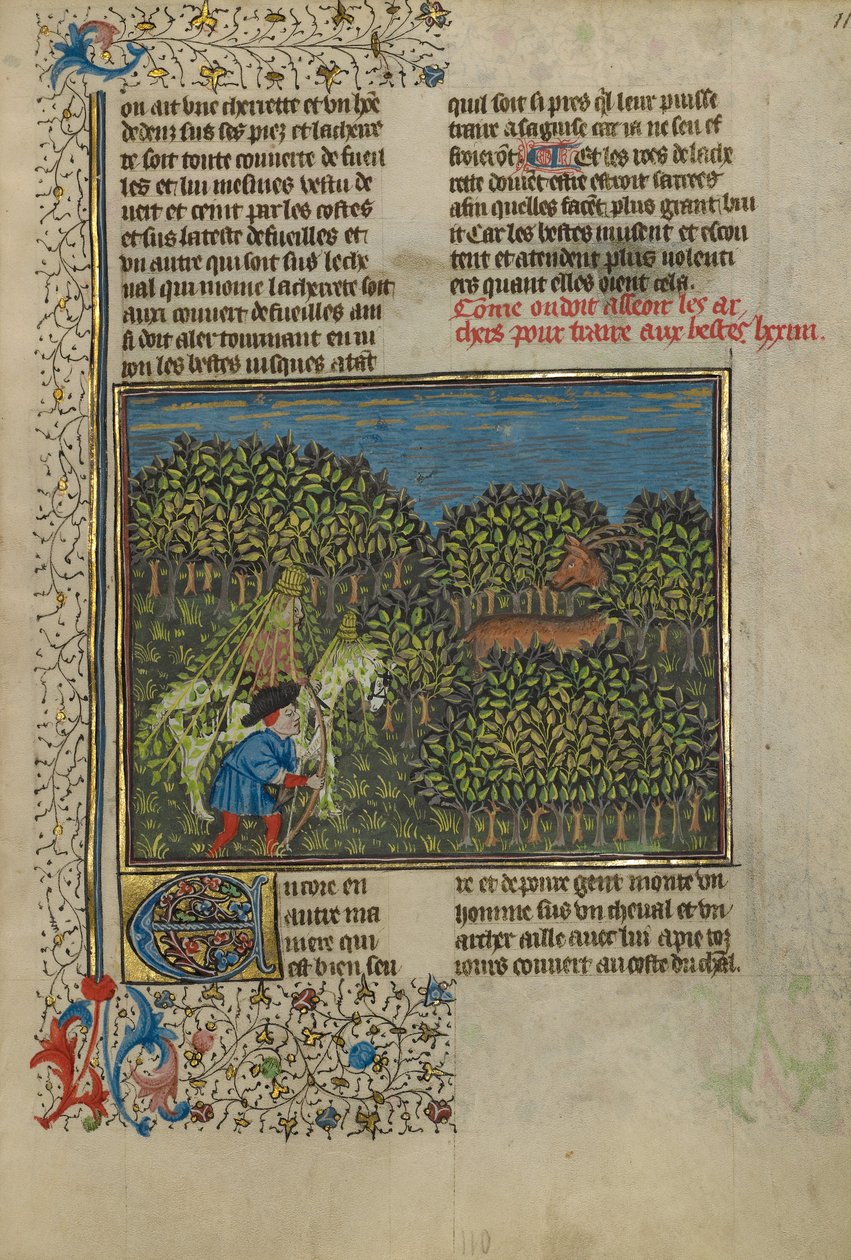 on ait vne cherrette et vn hōe
dedenz sus ses piez et la cherre
te soit toute couuerte de fueil
les et lui mesmes vestu de
uert et ceint par les costes
et sus la teste de fueilles et
vn autre qui soit sus le che
ual qui moine la cherrete soit
aux couuert de fueilles ain
si doit aler tournant en ui
ron les bestes iusques a tāt
quil soit si pres q̄l leur puisse
traire a sa guise car ia ne sen ef
froierōt Et les roes de la che
rette doiuēt estre estroit
afin quelles facēt plus grant bru
it Car les bestes musent et escou
tent et atendent plus uolenti
ers quant elles oient cela.
Cōme on doit asseoir les ar
chers pour traire aux bestes. lxxiiii.
Encore en
autre ma
niere qui
est bien seu
re et de poure gent monte vn
homme sus vn cheual et vn
archer aille auec lui a pie toz
iours couuert au coste du ch̄al.
110